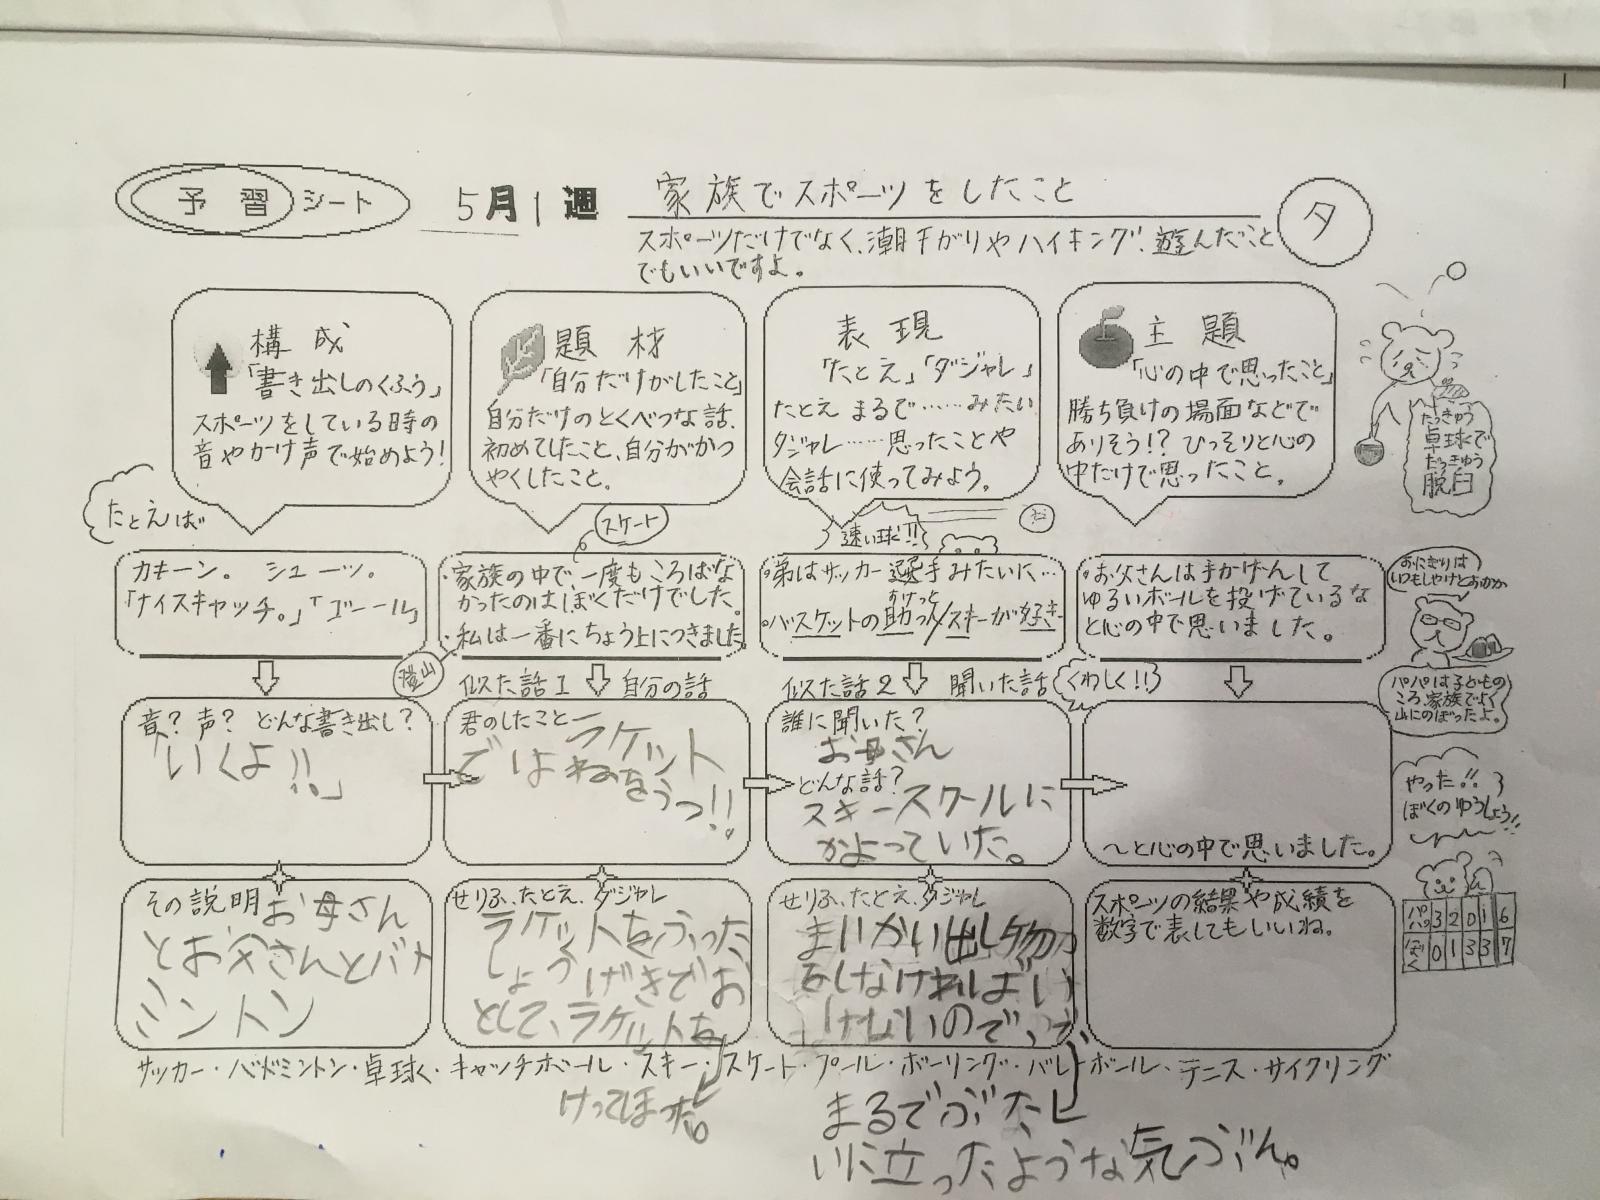 予習シート
5月1週
家族でスポーツをしたこと
タ
スポーツだけでなく、潮干がりやハイキング、遊んだこと
でもいいですよ。
構成
「書き出しのくふう」
スポーツをしている時の
音やかけ声で始めよう!
題材
「自分だけがしたこと」
自分だけのとくべつな話、
初めてしたこと、自分ががかつ
やくしたこと。
表現
「たとえ」「ダジャレ」
たとえ まるで……みたい
ダジャレ……思ったことや
会話に使ってみよう。
主題
「心の中で思ったこと」
勝ち負けの場面などで
ありそう!? ひっそりと心の
中だけで思ったこと。
たっきゅう
卓球で
だっきゅう
脱臼
たとえば
カキーン。 シューッ。
「ナイスキャッチ。」「ゴール」
スケート
・家族の中で、一度もころばな
かったのはぼくだけでした。
・私は一番にちょう上につきました。
登山
速い球!!
・弟はサッカー選手みたいに…
・バスケットの助っ人/スキーが好き
・お父さんは手かげんして
ゆるいボールを投げているな
と心の中で思いました。
おにぎりは
いつもしゃけとおかか
パパは子どもの
ころ、家族でよく
山にのぼったよ。
似た話1 自分の話
似た話2 聞いた話
くわしく!!
音? 声? どんな書き出し?
「いくよ!!」
君のしたこと
ラケット
ではねをうつ!!
誰に聞いた?
お母さん
どんな話?
スキースクールに
かよっていた。
~と心の中で思いました。
やった!!
ぼくのゆうしょう!!
その説明
お母さん
とお父さんとバド
ミントン
せりふ、たとえ、ダジャレ
ラケットをふった
しょうげきでお
として、ラケットを
けってほった。
せりふ、たとえ、ダジャレ
まいかい出し物
をしなければい
けないので、
まるでぶたい
に立ったような気ぶん。
スポーツの結果や成績を
数字で表してもいいね。
パパ 3 2 0 1 6
ぼく 0 1 3 3 7
サッカー・バドミントン・卓球・キャッチボール・スキー・スケート・プール・ボーリング・バレーボール・テニス・サイクリング